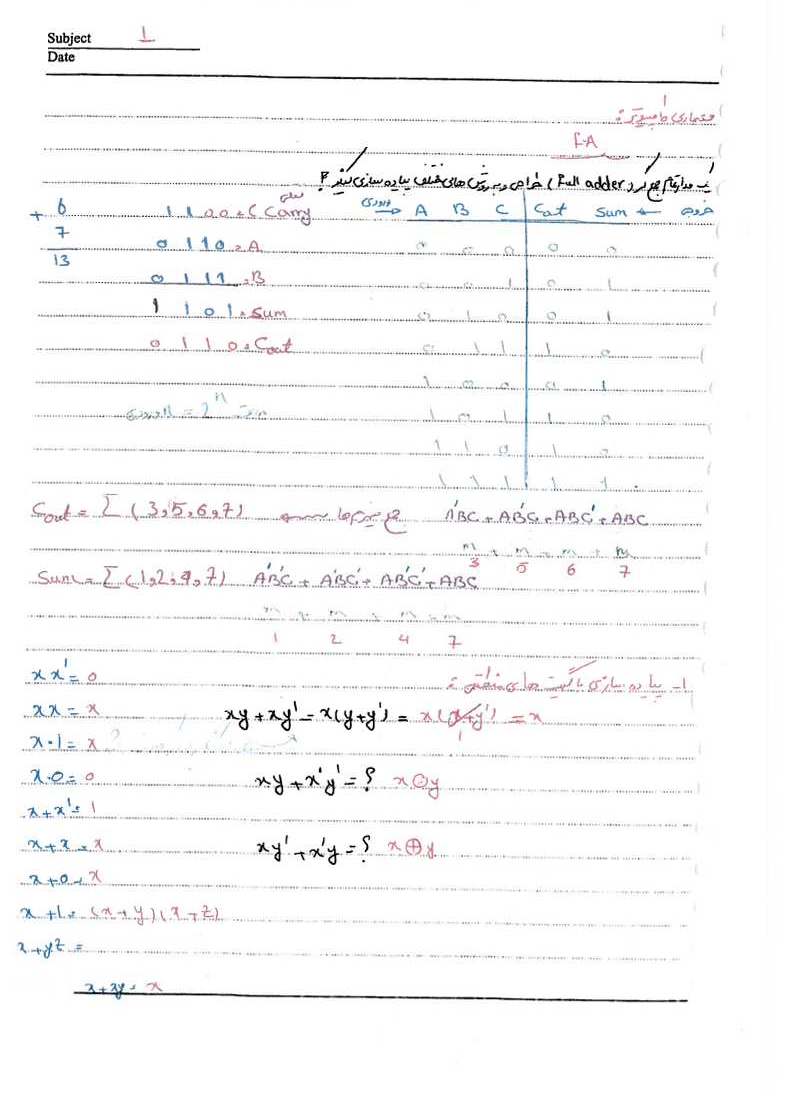 Subject 1
Date
معماری کامپیوتر:
F.A
1- مدار تمام جمع گر (Full adder) طراحی و به روش های مختلف پیاده سازی کنید؟
+ 6 1 1 0 0 = C Carry ورودی A B C Cout Sum ← خروجی
7 0 1 1 0 = A 0 0 0 0 0
13 0 1 1 1 = B 0 0 1 0 1
1 1 0 1 = Sum 0 1 0 0 1
0 1 1 0 = Cout 0 1 1 1 0
1 0 0 0 1
حالت = 2ⁿ = n ورودی 1 0 1 1 0
1 1 0 1 0
1 1 1 1 1
Cout = Σ (3,5,6,7) جمع مینترم ها A'BC + AB'C + ABC' + ABC
m3 + m5 + m6 + m7
Sum = Σ (1,2,4,7) A'B'C + A'BC' + AB'C' + ABC
m1 + m2 + m4 + m7
x x' = 0 1- پیاده سازی با گیت های منطقی:
x x = x xy + xy' = x(y+y') = x(y+y') = x
1
x·1 = x
x·0 = 0 xy + x'y' = ? x⊙y
x + x' = 1
x + x = x xy' + x'y = ? x⊕y
x + 0 = x
x + 1 = (x+y)(x+z)
x + yz =
x + xy = x